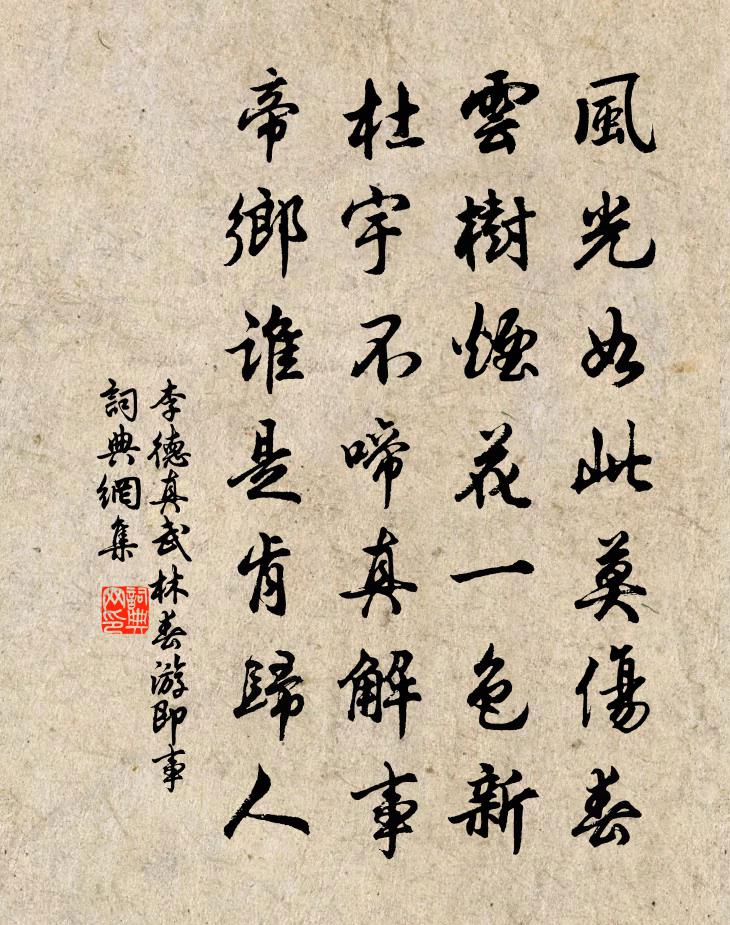 風光如此莫傷春
雲樹煙花一色新
杜宇不啼真解事
帝鄉誰是肯歸人
李德真武林春游即事
詞典網集
詞典網印